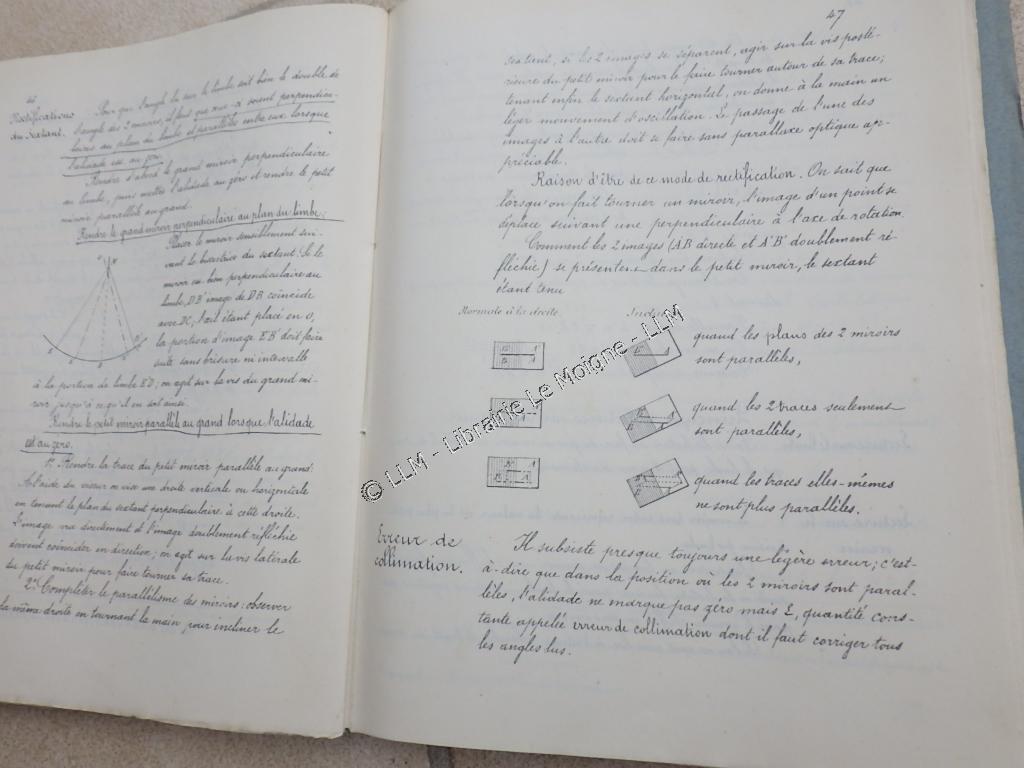 46
Rectifications
du Sextant.
Pour que l'angle lu sur le limbe soit bien le double de
l'angle des 2 miroirs, il faut que ceux-ci soient perpendicu-
laires au plan du limbe et parallèles entre eux lorsque
l'alidade est au zéro.
Rendre d'abord le grand miroir perpendiculaire
au limbe, puis mettre l'alidade au zéro et rendre le petit
miroir parallèle au grand.
Rendre le grand miroir perpendiculaire au plan du limbe:
Placer le miroir sensiblement sui-
vant la bissectrice du sextant. Si le
miroir est bien perpendiculaire au
limbe, DB' image de DB coïncide
avec DC; l'œil étant placé en O,
la portion d'image E'B' doit faire
suite sans brisure ni intervalle
à la portion de limbe ED; on agit sur la vis du grand mi-
roir jusqu'à ce qu'il en soit ainsi.
Rendre le petit miroir parallèle au grand lorsque l'alidade
est au zéro.
1° Rendre la trace du petit miroir parallèle au grand:
A l'aide du viseur on vise une droite verticale ou horizontale
en tenant le plan du sextant perpendiculaire à cette droite.
L'image vue directement et l'image doublement réfléchie
doivent coïncider en direction; on agit sur la vis latérale
du petit miroir pour faire tourner sa trace.
2° Compléter le parallélisme des miroirs: observer
la même droite en tournant la main, pour incliner le
47
sextant, si les 2 images se séparent, agir sur la vis posté-
rieure du petit miroir pour le faire tourner autour de sa trace;
tenant enfin le sextant horizontal, on donne à la main un
léger mouvement d'oscillation. Le passage de l'une des
images à l'autre doit se faire sans parallaxe optique ap-
préciable.
Raison d'être de ce mode de rectification. On sait que
lorsqu'on fait tourner un miroir, l'image d'un point se
déplace suivant une perpendiculaire à l'axe de rotation.
Comment les 2 images (AB directe et A'B' doublement ré-
fléchie) se présentent dans le petit miroir, le sextant
étant tenu
Normale à la droite.
quand les plans des 2 miroirs
sont parallèles,
quand les 2 traces seulement
sont parallèles,
quand les traces elles-mêmes
ne sont plus parallèles.
© LLM - Librairie Le Moigne - LLM
Erreur de
collimation.
Il subsiste presque toujours une légère erreur; c'est-
à-dire que dans la position où les 2 miroirs sont paral-
lèles, l'alidade ne marque pas zéro mais ε, quantité cons-
tante appelée erreur de collimation dont il faut corriger tous
les angles lus.